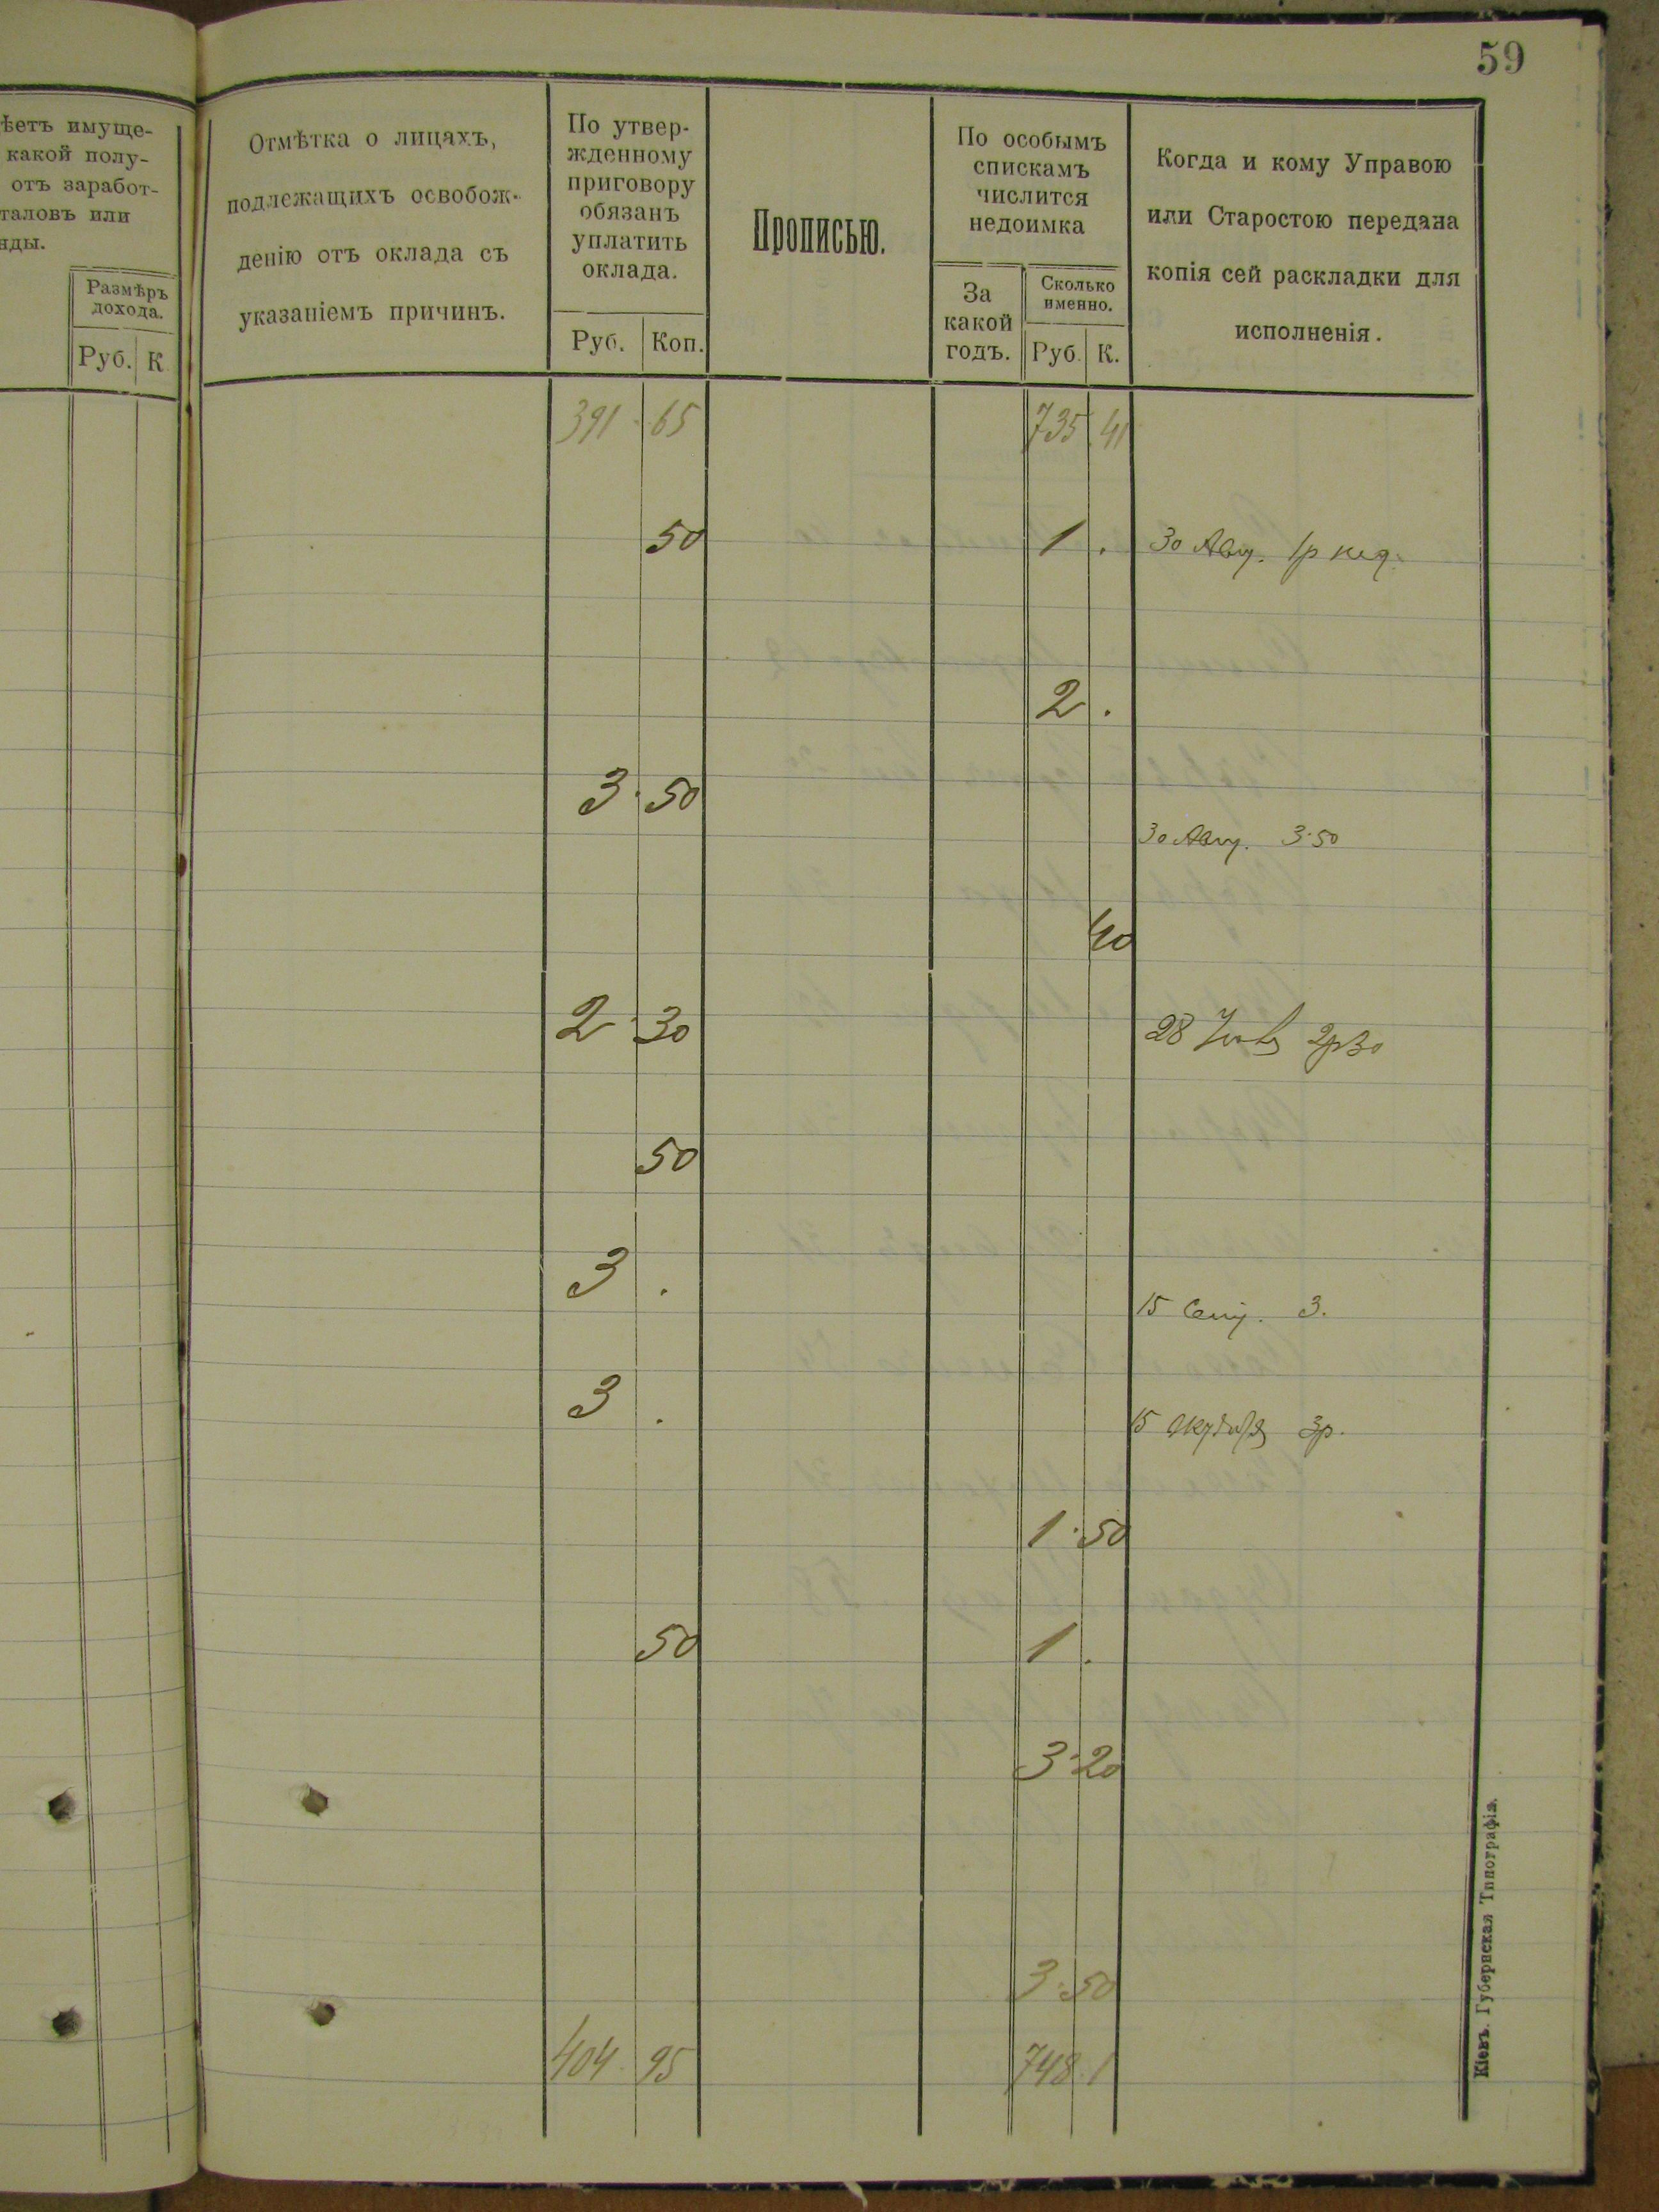 59
ѣетъ имуще-
какой полу-
отъ заработ-
таловъ или
нды.
Размѣръ
дохода.
Руб. К
Отмѣтка о лицахъ,
подлежащихъ освобож-
денію отъ оклада съ
указаніемъ причинъ.
По утвер-
жденному
приговору
обязанъ
уплатить
оклада.
Руб. Коп.
Прописью.
По особымъ
спискамъ
числится
недоимка
За
какой
годъ.
Сколько
именно.
Руб. К.
Когда и кому Управою
или Старостою передана
копія сей раскладки для
исполненія.
391 65 735 41
50 1 . 30 Авг. 1р нед.
2 .
3 50
30 Авг. 3·50
40
2 30 28 2р30
50
3 .
15 Сент. 3.
3 . 15 Октября 3р.
1 50
50 1 .
3 20
3 50
404 95 748 1
Кіевъ. Губернская Типографія.